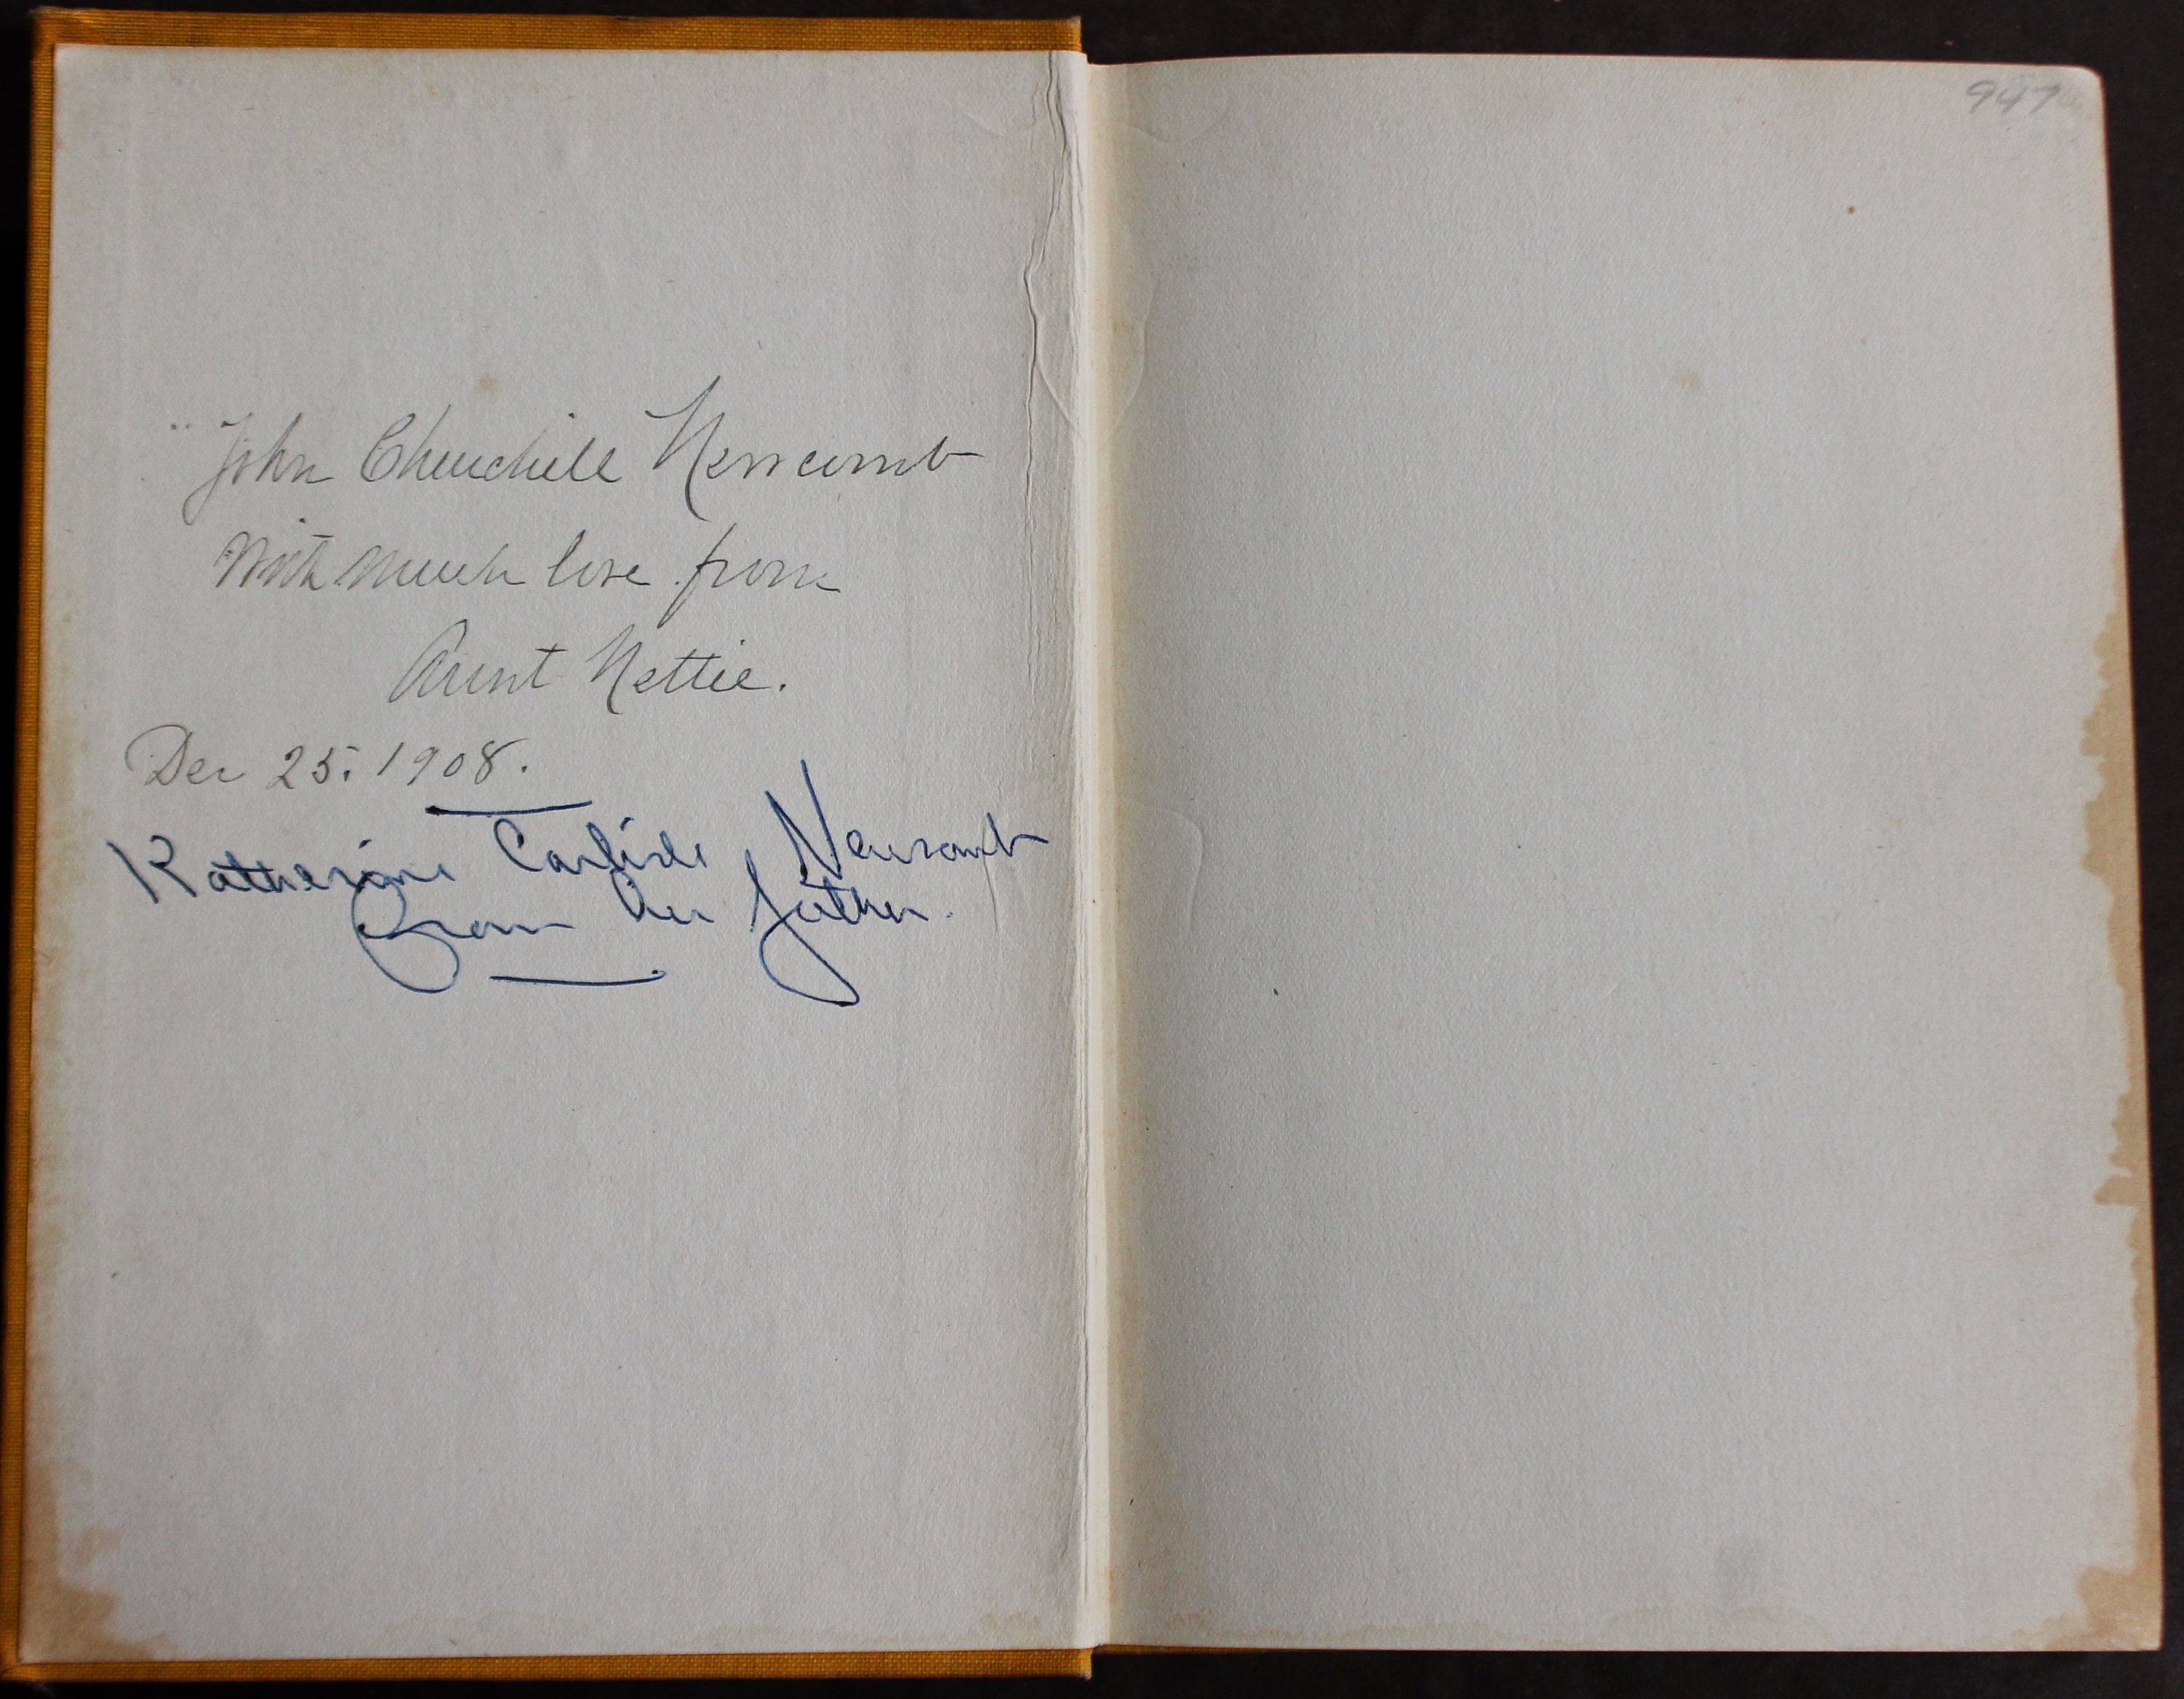 John Churchill Newcomb
With much love from
Aunt Nettie.
Dec 25. 1908.
Katherine Carlisle Newcomb
from her father.
947